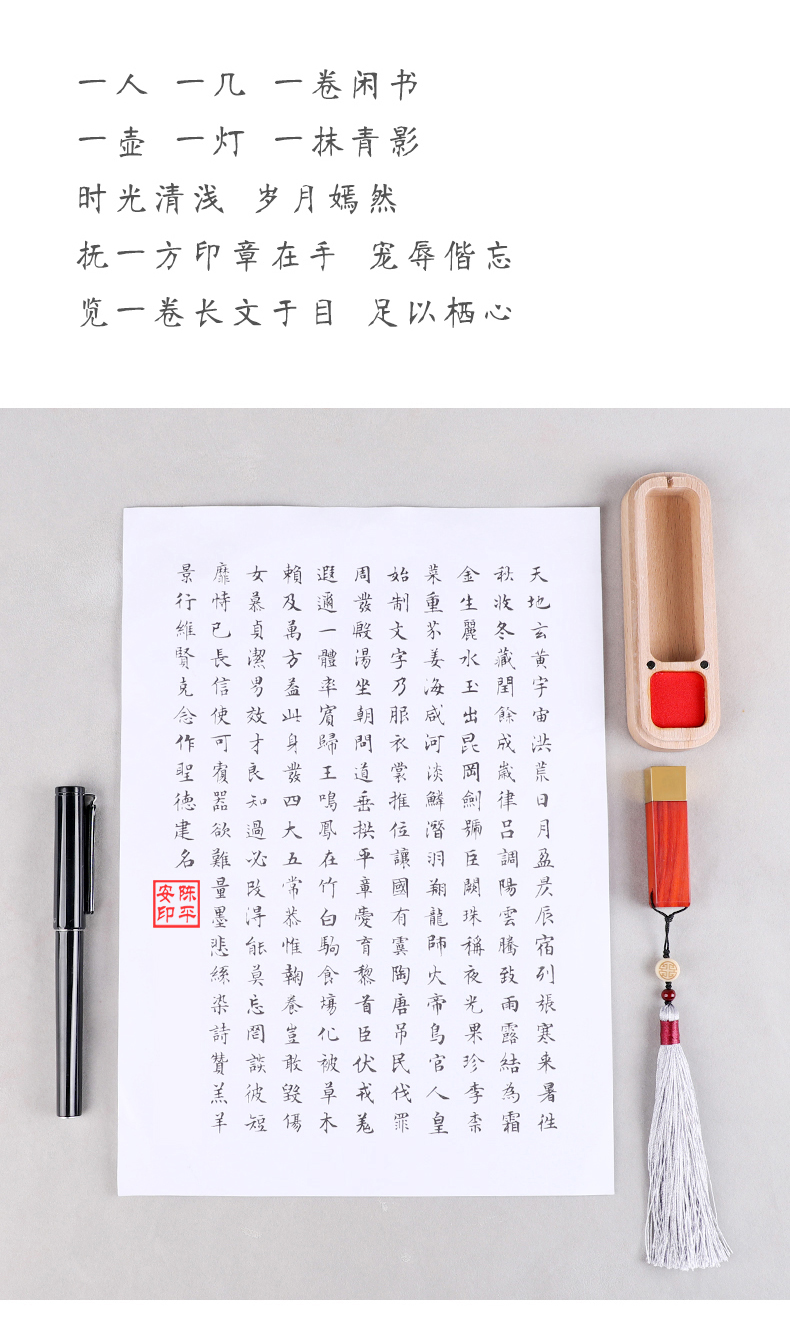 一人 一几 一卷闲书
一壶 一灯 一抹青影
时光清浅 岁月嫣然
抚一方印章在手 宠辱偕忘
览一卷长文于目 足以栖心
天地玄黄宇宙洪荒日月盈昃辰宿列張寒来暑往
秋收冬藏閏餘成歲律呂調陽雲騰致雨露結為霜
金生麗水玉出昆岡劍號巨闕珠稱夜光果珍李柰
菜重芥姜海咸河淡鱗潛羽翔龍師火帝鳥官人皇
始制文字乃服衣裳推位讓國有虞陶唐吊民伐罪
周發殷湯坐朝問道垂拱平章愛育黎首臣伏戎羌
遐邇一體率賓歸王鳴鳳在竹白駒食場化被草木
賴及萬方蓋此身發四大五常恭惟鞠養豈敢毀傷
女慕貞潔男效才良知過必改得能莫忘罔談彼短
靡恃己長信使可覆器欲難量墨悲絲染詩贊羔羊
景行維賢克念作聖德建名
陈平
安印